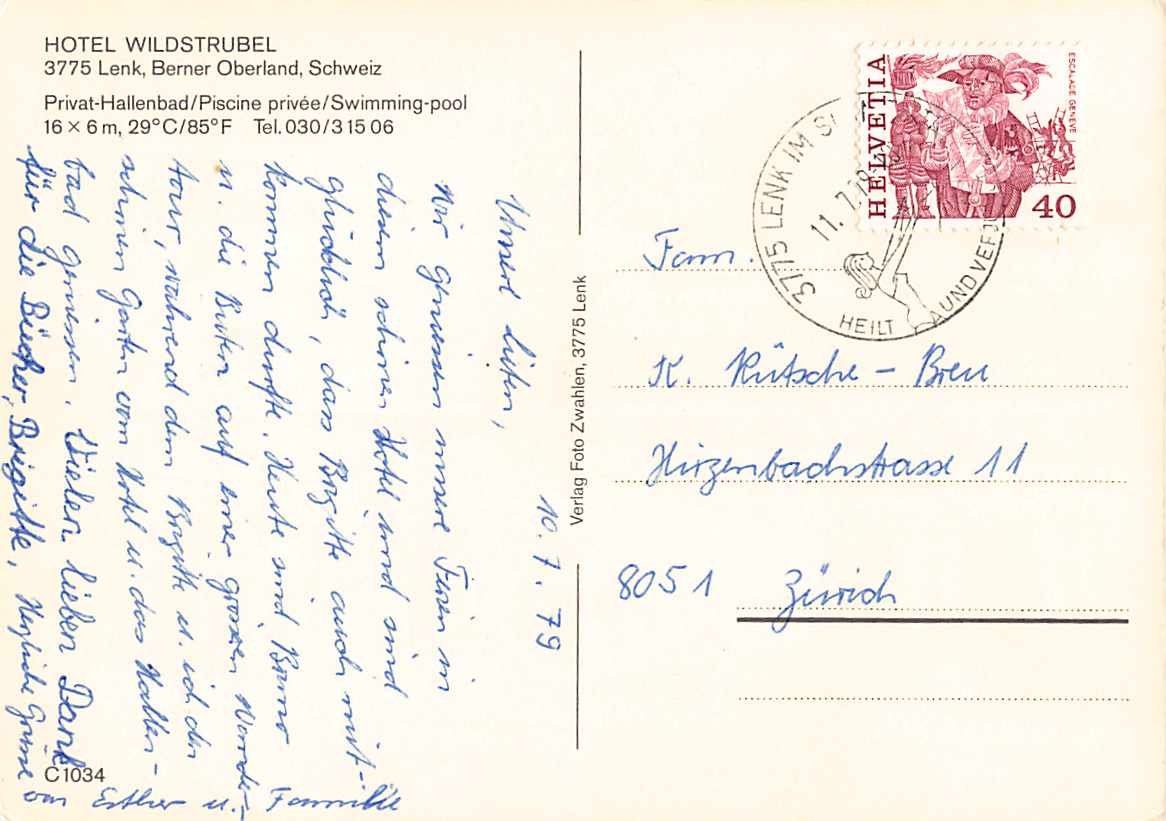 HOTEL WILDSTRUBEL
3775 Lenk, Berner Oberland, Schweiz
Privat-Hallenbad/Piscine privée/Swimming-pool
16 × 6 m, 29°C/85°F Tel. 030/3 15 06
10. 7. 79
Unsere lieben,
Wir geniessen unsere Ferien in
diesem schönen Hotel und sind
glücklich, dass Brigitte auch mit-
kommen durfte. Heute sind Bruno
u. die Buben auf einer grossen Wander-
tour, während dem Brigitte u. ich den
schönen Garten vom Hotel u. das Hallen-
bad geniessen. Vielen lieben Dank
für die Bücher, Brigitte. Herzliche Grüsse
von Esther u. Familie
C1034
Verlag Foto Zwahlen, 3775 Lenk
HELVETIA
ESCALADE GENÈVE
40
3775 LENK IM S
11. 7. 79
HEILT UND VERJÜ
Fam.
K. Rütsche - Breu
Hirzenbachstrasse 11
8051 Zürich